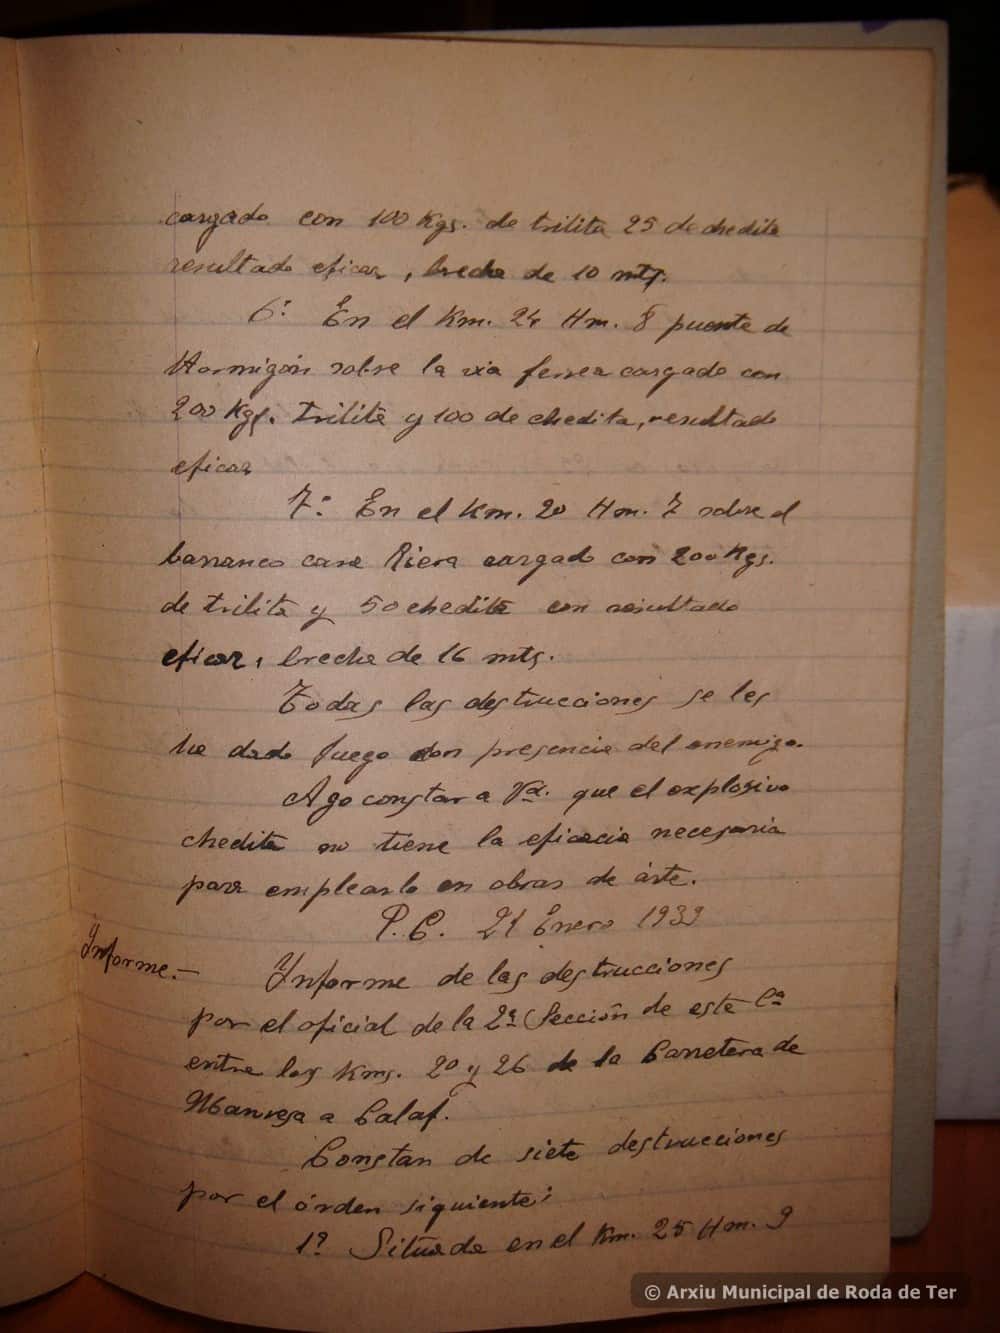 cargado con 100 Kgs. de trilita 25 de chedita
resultado eficaz, brecha de 10 mts.
6º En el Km. 24 Hm. 8 puente de
Hormigón sobre la via ferrea cargado con
200 Kgs. trilita y 100 de chedita, resultado
eficaz
7º En el Km. 20 Hm. 7 sobre el
barranco casa Riera cargado con 200 Kgs.
de trilita y 50 chedita con resultado
eficaz, brecha de 16 mts.
Todas las destrucciones se les
ha dado fuego con presencia del enemigo.
Ago constar a Vd. que el explosivo
chedita no tiene la eficacia necesaria
para emplearlo en obras de árte.
P.C. 21 Enero 1939
Informe.- Informe de las destrucciones
por el oficial de la 2ª Sección de esta Cª
entre los Kms. 20 y 26 de la Carretera de
Manresa a Calaf.
Constan de siete destrucciones
por el órden siguiente;
1º Situada en el Km. 25 Hm. 9
© Arxiu Municipal de Roda de Ter